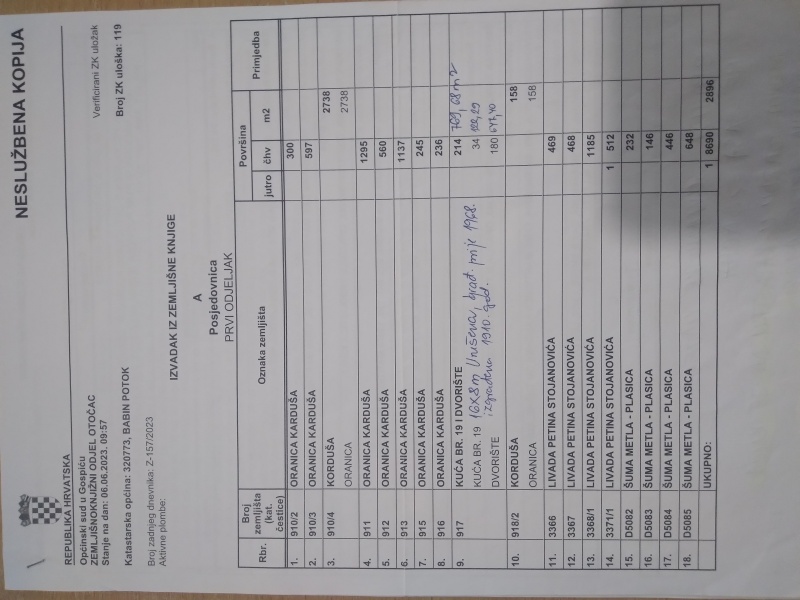 NESLUŽBENA KOPIJA
REPUBLIKA HRVATSKA
Općinski sud u Gospiću
ZEMLJIŠNOKNJIŽNI ODJEL OTOČAC
Stanje na dan: 06.06.2023. 09:57
Verificirani ZK uložak
Katastarska općina: 320773, BABIN POTOK
Broj ZK uloška: 119
Broj zadnjeg dnevnika: Z-157/2023
Aktivne plombe:
IZVADAK IZ ZEMLJIŠNE KNJIGE
A
Posjedovnica
PRVI ODJELJAK
Rbr. Broj zemljišta (kat. čestice) Oznaka zemljišta Površina Primjedba
jutro čhv m2
1. 910/2 ORANICA KARDUŠA 300
2. 910/3 ORANICA KARDUŠA 597
3. 910/4 KORDUŠA 2738
ORANICA 2738
4. 911 ORANICA KARDUŠA 1295
5. 912 ORANICA KARDUŠA 560
6. 913 ORANICA KARDUŠA 1137
7. 915 ORANICA KARDUŠA 245
8. 916 ORANICA KARDUŠA 236
9. 917 KUĆA BR. 19 I DVORIŠTE 214 769,68 m2
KUĆA BR. 19 16x8m Urušena, građ. prije 1968. 34 122,29
DVORIŠTE izgrađena 1910. god. 180 647,40
10. 918/2 KORDUŠA 158
ORANICA 158
11. 3366 LIVADA PETINA STOJANOVIĆA 469
12. 3367 LIVADA PETINA STOJANOVIĆA 468
13. 3368/1 LIVADA PETINA STOJANOVIĆA 1185
14. 3371/1 LIVADA PETINA STOJANOVIĆA 1 512
15. D5082 ŠUMA METLA - PLASICA 232
16. D5083 ŠUMA METLA - PLASICA 146
17. D5084 ŠUMA METLA - PLASICA 446
18. D5085 ŠUMA METLA - PLASICA 648
UKUPNO: 1 8690 2896